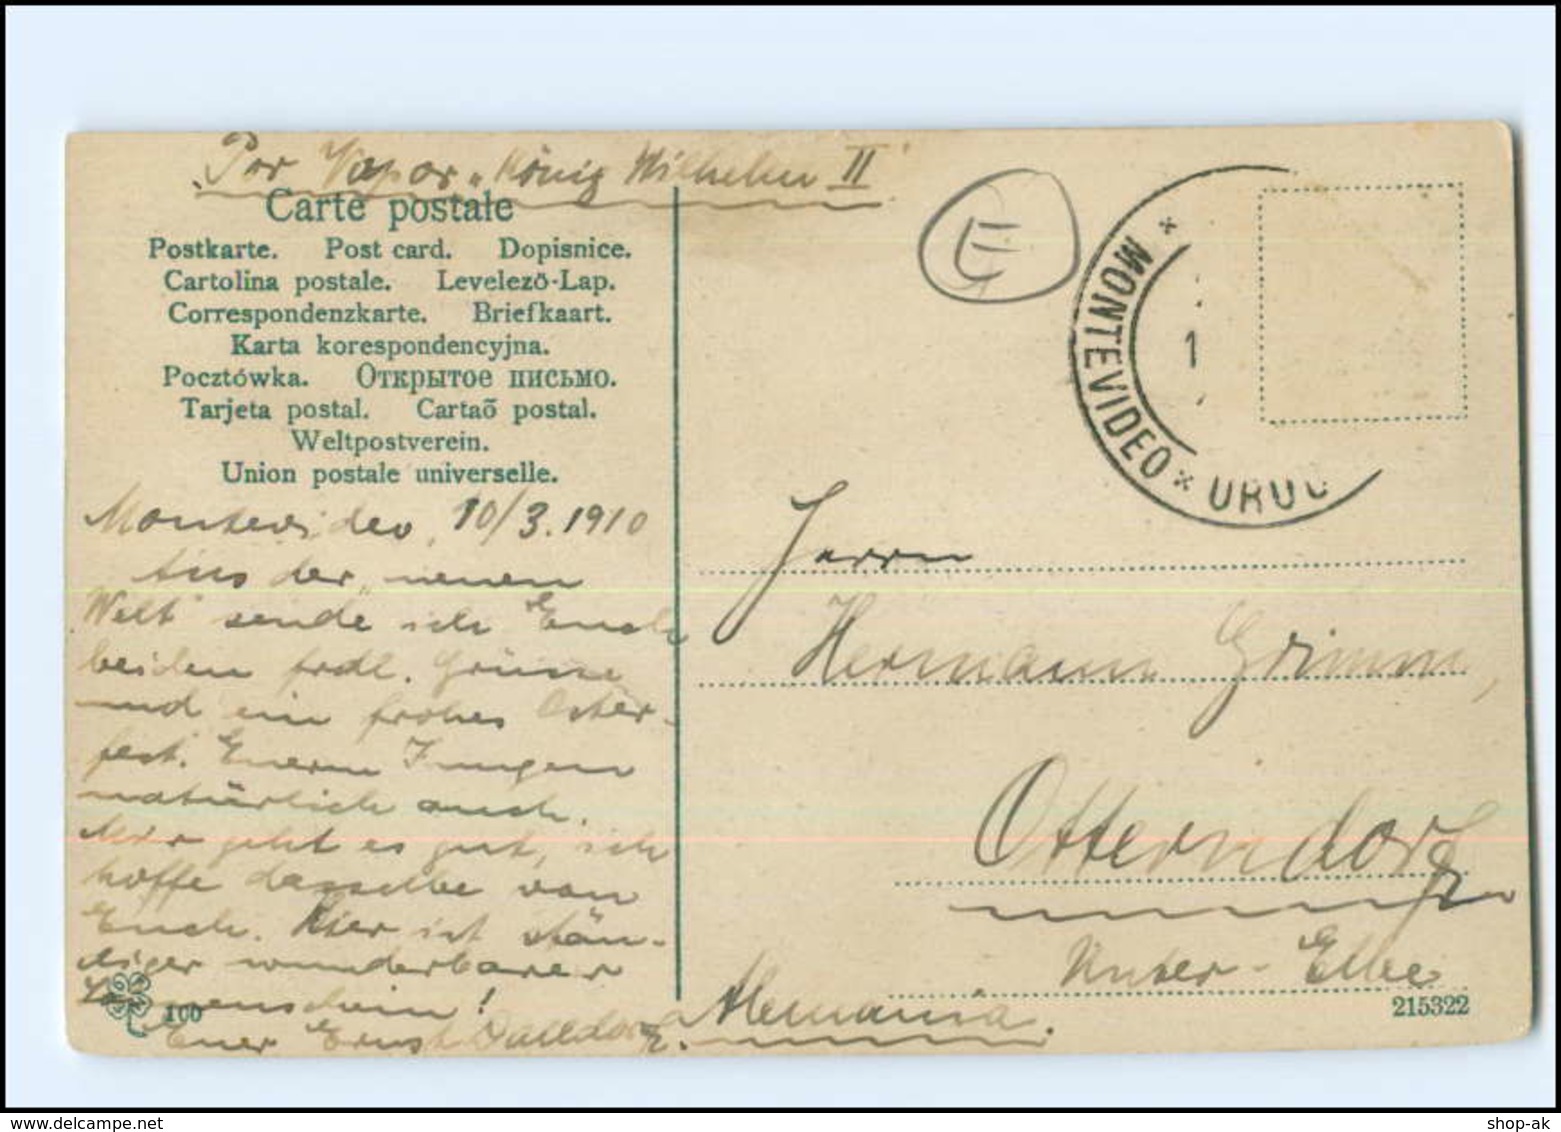 Por Vapor „König Wilhelm II"
Carte postale
Postkarte. Post card. Dopisnice.
Cartolina postale. Levelező-Lap.
Correspondenzkarte. Briefkaart.
Karta korespondencyjna.
Pocztówka. Открытое письмо.
Tarjeta postal. Cartaõ postal.
Weltpostverein.
Union postale universelle.
Montevideo, 10/3.1910
Aus der „neuen
Welt" sende ich Euch
beiden frdl. Grüsse
und ein frohes Oster-
fest. Euerm Jungen
natürlich auch.
Mir geht es gut, ich
hoffe dasselbe von
Euch. Hier ist stän-
diger wunderbarer
Sonnenschein!
Euer Ernst
100
E
* MONTEVIDEO * URUG
1
Herrn
Hermann Grimm,
Otterndorf
Unter-Elbe
Alemania.
215322
shop-ak